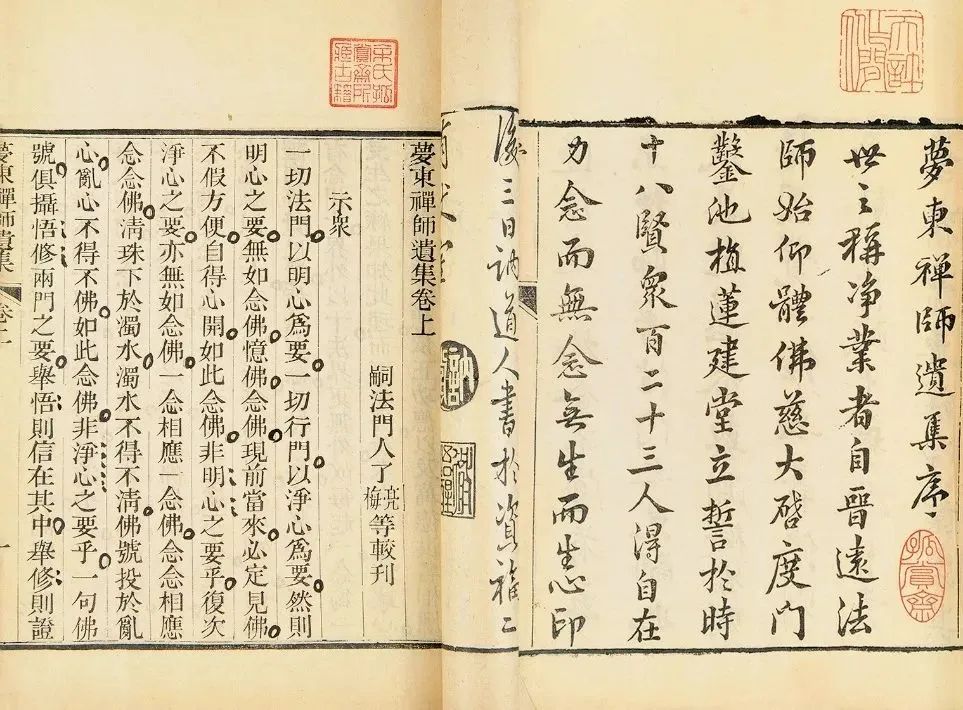 夢東禪師遺集序
世之稱净業者自晉遠法
師始仰體佛慈大啓度門
鑿池植蓮建堂立誓於時
十八賢衆百二十三人得自在
力念而無念無生而生心印
後三日訥道人書於資福二
夢東禪師遺集卷上
嗣法門人了亮梅等較刊
示衆
一切法門以明心爲要一切行門以淨心爲要然則
明心之要無如念佛憶佛念佛現前當來必定見佛
不假方便自得心開如此念佛非明心之要乎復次
淨心之要亦無如念佛一念相應一念佛念念相應
念念佛清珠下於濁水濁水不得不清佛號投於亂
心亂心不得不佛如此念佛非淨心之要乎一句佛
號俱攝悟修兩門之要舉悟則信在其中舉修則證
夢東禪師遺集
卷上
一